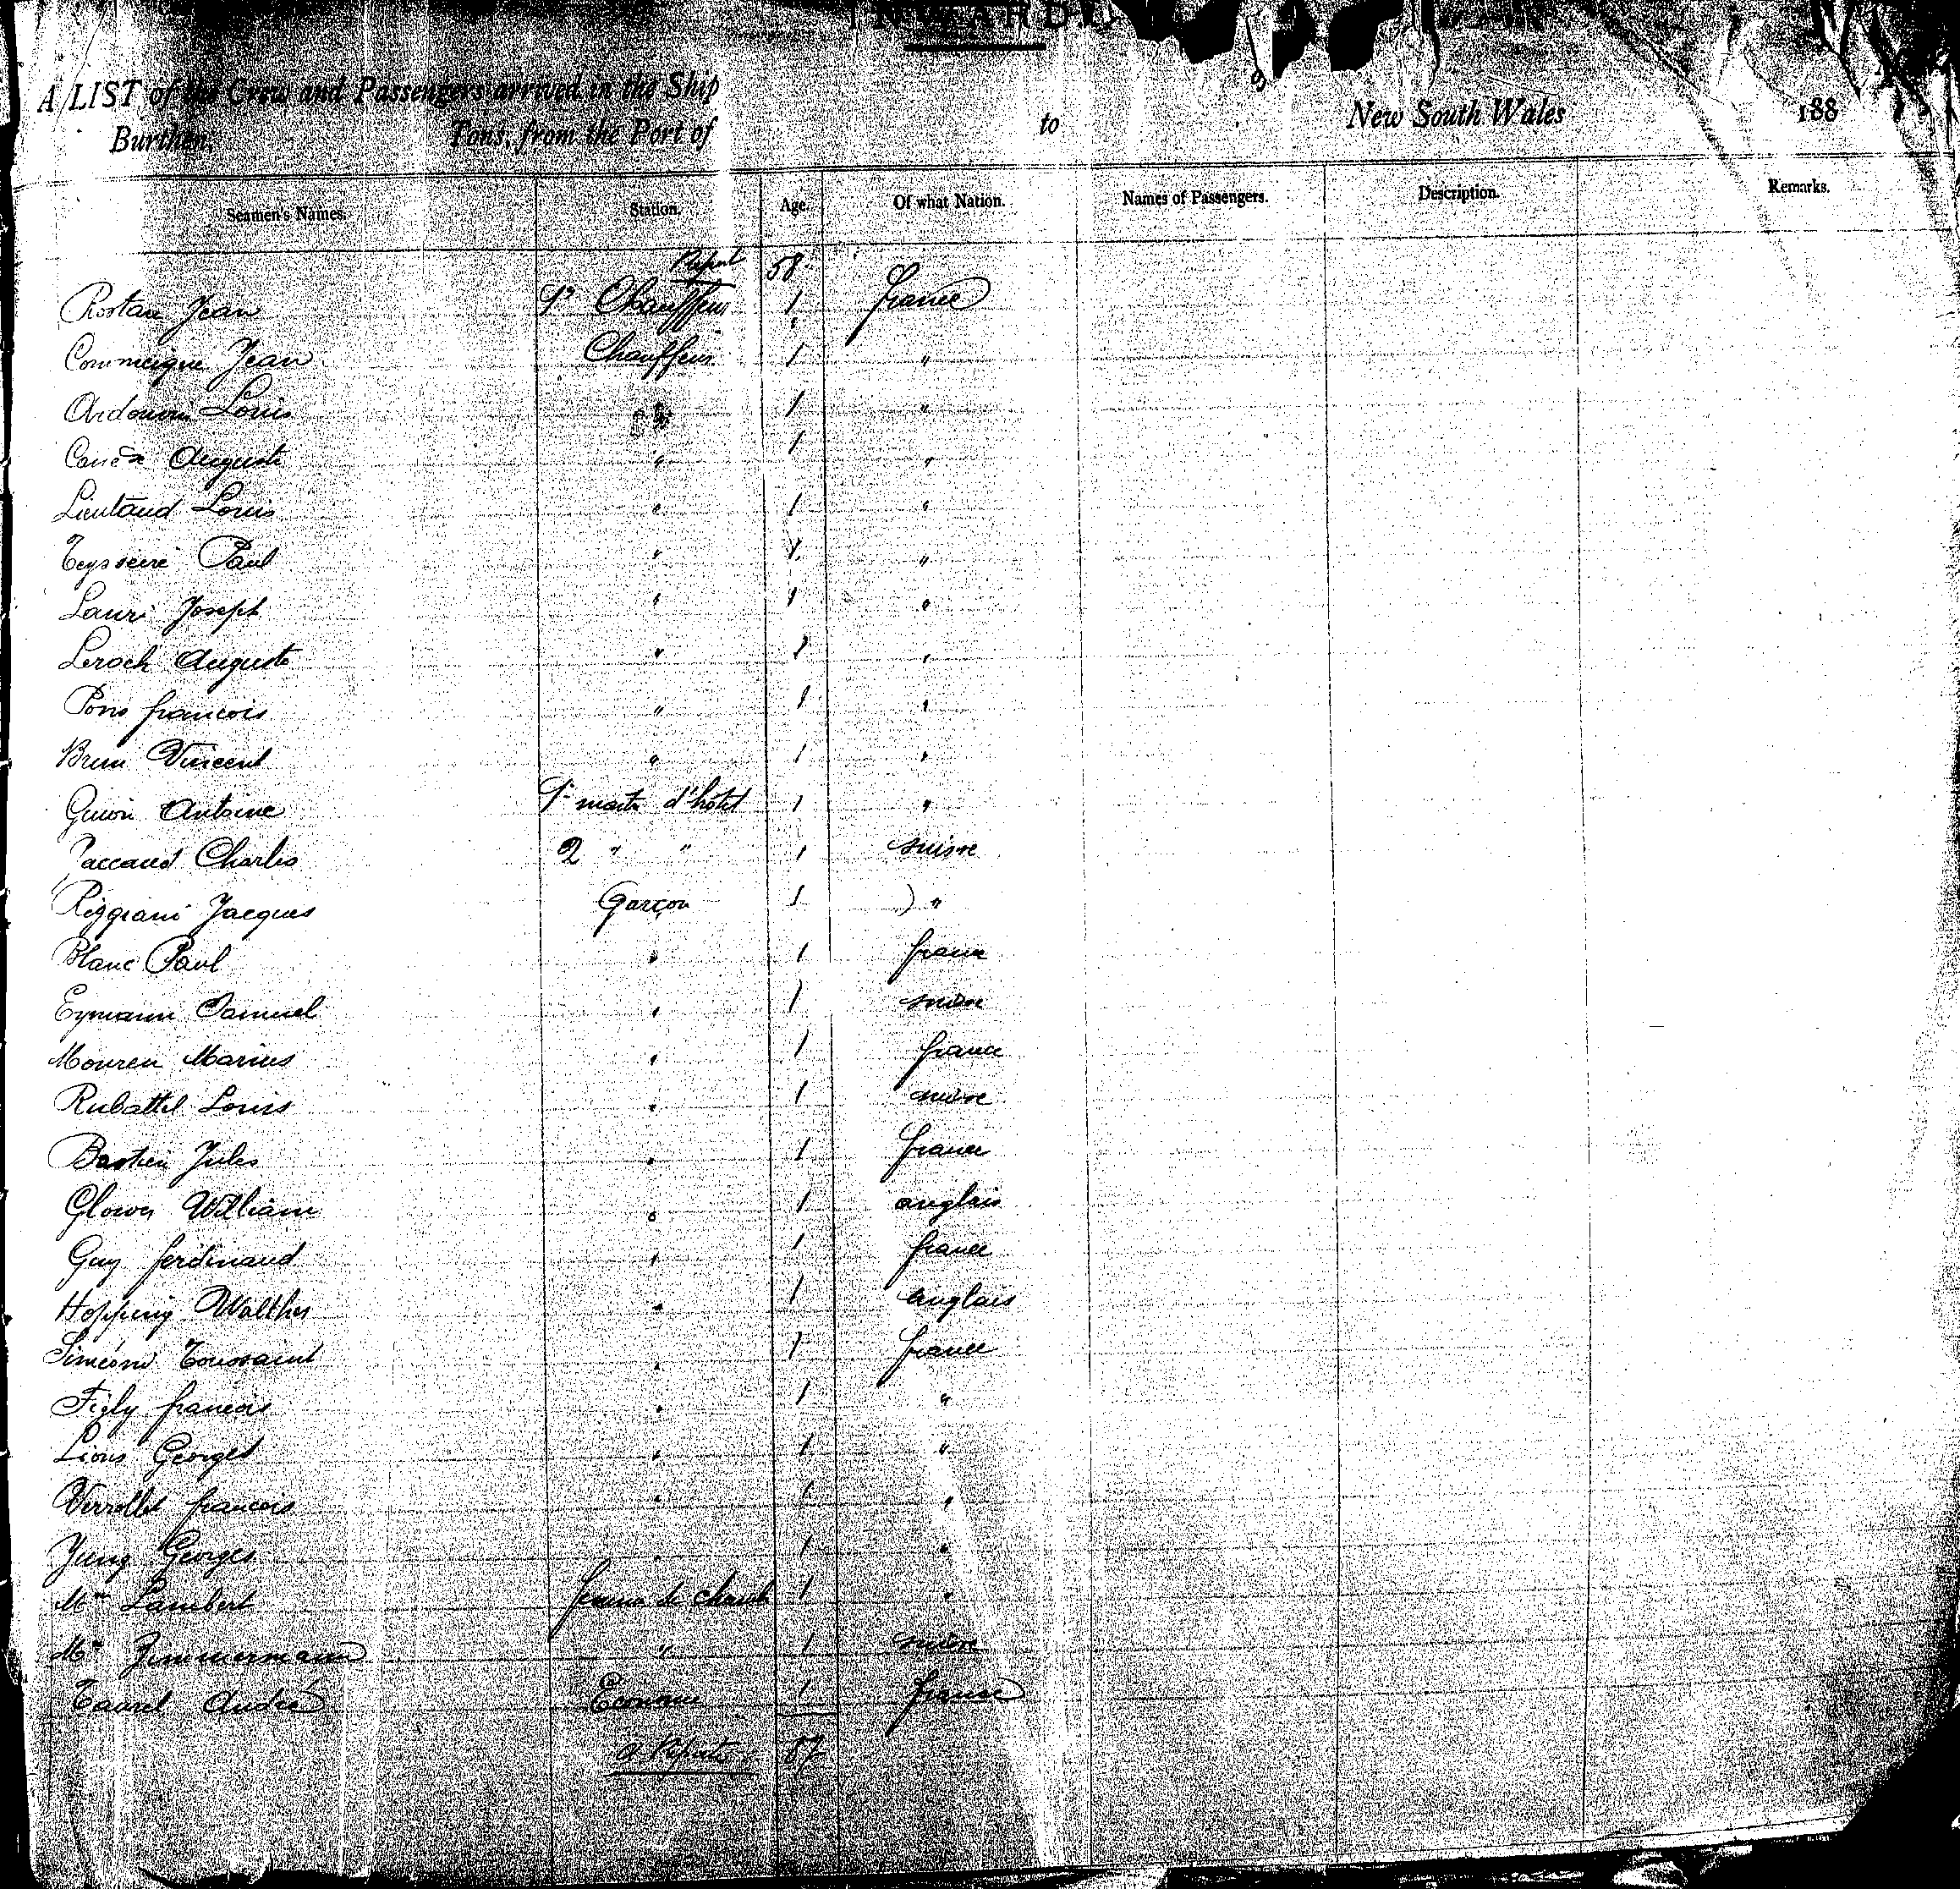 INWARD
A LIST of the Crew and Passengers arrived in the Ship
Burthen, Tons, from the Port of to New South Wales 188
Seamen's Names. Station. Age. Of what Nation. Names of Passengers. Description. Remarks.
Report 58
Rostan Jean 1er Chauffeur 1 france
Jean Chauffeur 1 "
Louis 1 "
Auguste " 1 "
Lieutaud Louis " 1 "
Teysseire Paul " 1 "
Joseph " 1 "
Leroch Auguste " 1 "
Pons francois " 1 "
Brun Vincent " 1 "
Antoine 1er d'hôtel 1 "
Paccaud Charles 2 " " 1 suisse
Jacques Garçon 1 "
Blanc Paul " 1 france
Eymann Samuel " 1 suisse
Mouren Marius " 1 france
Rubattel Louis " 1 suisse
Bastien Jules " 1 france
Glower William " 1 anglais
Guy ferdinand " 1 france
Hopping Walther " 1 anglais
Toussaint " 1 france
francois " 1 "
Lions Georges " 1 "
francois " 1 "
Jung Georges " 1 "
Mme Lambert femme de chamb 1 "
Mme Zimmermann " 1 suisse
Taurel André Econome 1 france
a Reporter 87